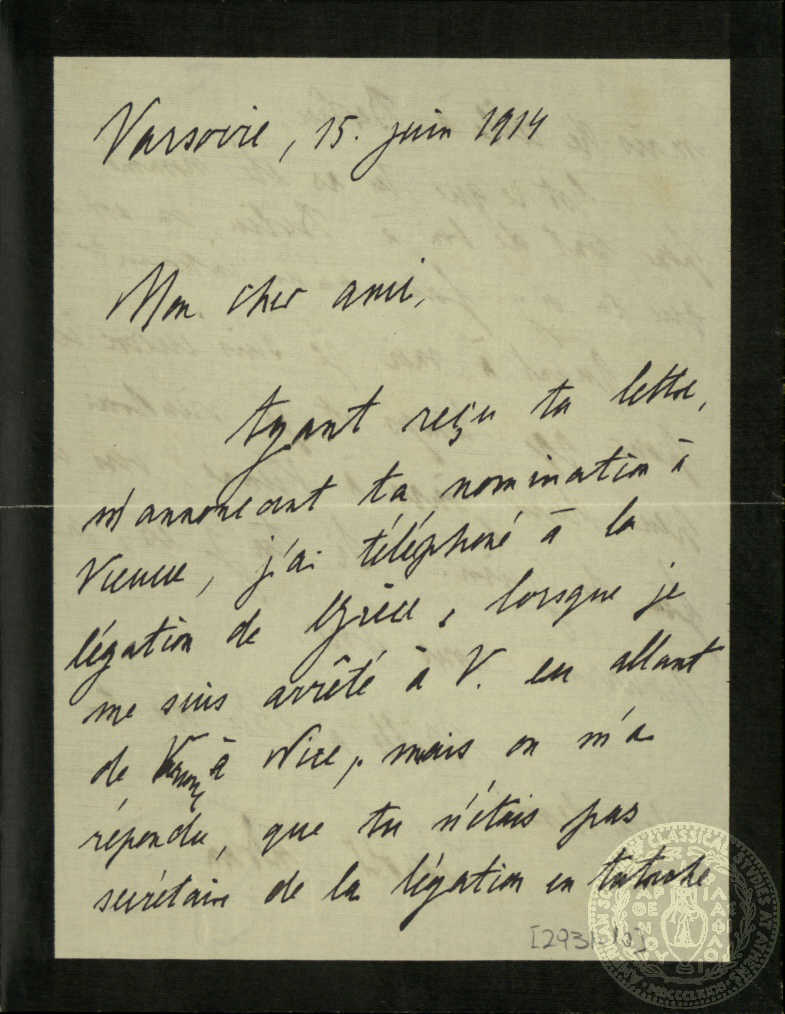 Varsovie, 15. juin 1914
Mon cher ami,
Ayant reçu ta lettre,
m'annonçant ta nomination à
Vienne, j'ai téléphoné à la
légation de Grèce, lorsque je
me suis arrêté à V. en allant
de à Nice, mais on m'a
répondu, que tu n'étais pas
secrétaire de la légation en
[2931-10]
AMERICAN SCHOOL OF CLASSICAL STUDIES AT ATHENS
ΠΑΡΘΕΝΟΥ ΦΙΛΑΣ ΑΠΟ
MDCCCLXXXI